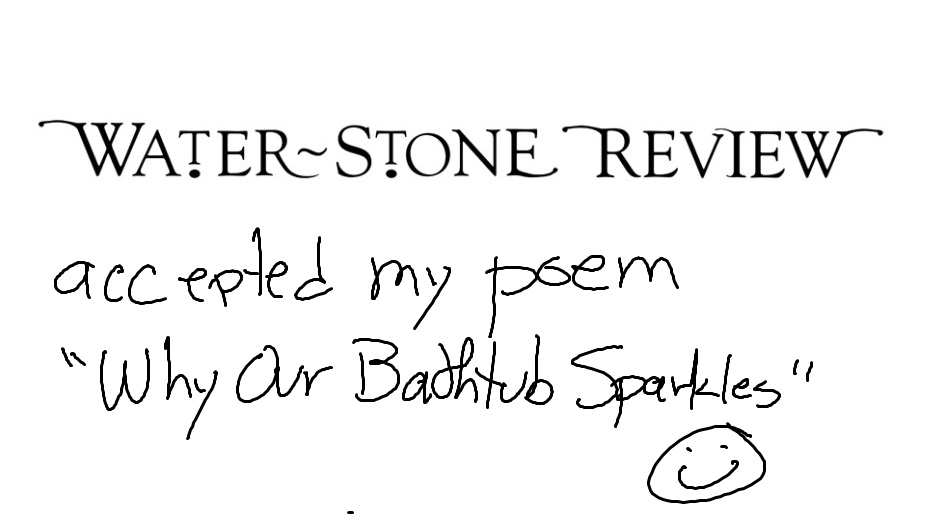 WATER~STONE REVIEW
accepted my poem
"Why Our Bathtub Sparkles"